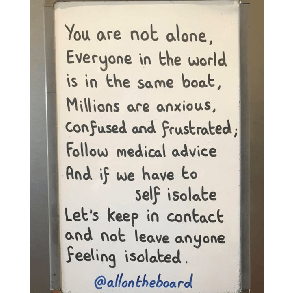 You are not alone,
Everyone in the world
is in the same boat,
Millions are anxious,
confused and frustrated;
Follow medical advice
And if we have to
self isolate
Let's keep in contact
and not leave anyone
feeling isolated.
@allontheboard